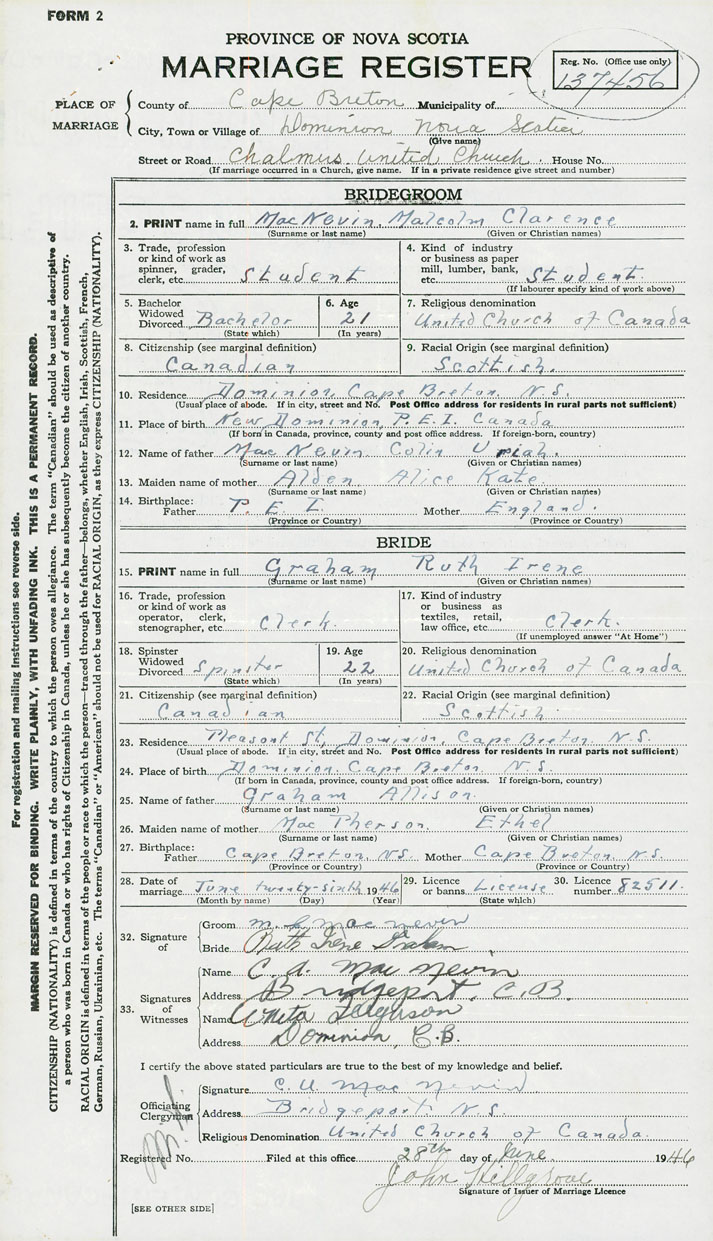 FORM 2
PROVINCE OF NOVA SCOTIA
MARRIAGE REGISTER
Reg. No. (Office use only)
137456
PLACE OF MARRIAGE
County of Cape Breton Municipality of
City, Town or Village of Dominion Nova Scotia
(Give name)
Street or Road Chalmers United Church. House No.
(If marriage occurred in a Church, give name. If in a private residence give street and number)
BRIDEGROOM
2. PRINT name in full MacNevin, Malcolm Clarence
(Surname or last name) (Given or Christian names)
3. Trade, profession or kind of work as spinner, grader, clerk, etc. Student
4. Kind of industry or business as paper mill, lumber, bank, etc. Student.
(If labourer specify kind of work above)
5. Bachelor Widowed Divorced Bachelor
(State which)
6. Age 21
(In years)
7. Religious denomination
United Church of Canada
8. Citizenship (see marginal definition)
Canadian
9. Racial Origin (see marginal definition)
Scottish.
10. Residence Dominion, Cape Breton N.S.
(Usual place of abode. If in city, street and No. Post Office address for residents in rural parts not sufficient)
11. Place of birth New Dominion, P.E.I. Canada
(If born in Canada, province, county and post office address. If foreign-born, country)
12. Name of father Mac Nevin Colin Uriah.
(Surname or last name) (Given or Christian names)
13. Maiden name of mother Alden Alice Kate.
(Surname or last name) (Given or Christian names)
14. Birthplace:
Father P.E.I. Mother England.
(Province or Country) (Province or Country)
BRIDE
15. PRINT name in full Graham Ruth Irene
(Surname or last name) (Given or Christian names)
16. Trade, profession or kind of work as operator, clerk, stenographer, etc. Clerk.
17. Kind of industry or business as textiles, retail, law office, etc. Clerk.
(If unemployed answer "At Home")
18. Spinster Widowed Divorced Spinster
(State which)
19. Age 22
(In years)
20. Religious denomination
United Church of Canada
21. Citizenship (see marginal definition)
Canadian
22. Racial Origin (see marginal definition)
Scottish
23. Residence Pleasant St, Dominion, Cape Breton N.S.
(Usual place of abode. If in city, street and No. Post Office address for residents in rural parts not sufficient)
24. Place of birth Dominion, Cape Breton N.S.
(If born in Canada, province, county and post office address. If foreign-born, country)
25. Name of father Graham Allison.
(Surname or last name) (Given or Christian names)
26. Maiden name of mother Mac Pherson. Ethel
(Surname or last name) (Given or Christian names)
27. Birthplace:
Father Cape Breton, N.S. Mother Cape Breton, N.S.
(Province or Country) (Province or Country)
28. Date of marriage June twenty-sixth 1946
(Month by name) (Day) (Year)
29. Licence or banns License
(State which)
30. Licence number 82511.
32. Signature of
Groom M. C. Mac Nevin
Bride Ruth Irene Graham
33. Signatures of Witnesses
Name C. A. Mac Nevin
Address Bridgeport, C.B.
Name Anita Ferguson
Address Dominion, C.B.
I certify the above stated particulars are true to the best of my knowledge and belief.
Officiating Clergyman
Signature C. U. Mac Nevin
Address Bridgeport N.S.
Religious Denomination United Church of Canada.
Registered No. Filed at this office 28th day of June 1946
John
Signature of Issuer of Marriage Licence
[SEE OTHER SIDE]
For registration and mailing instructions see reverse side.
MARGIN RESERVED FOR BINDING. WRITE PLAINLY, WITH UNFADING INK. THIS IS A PERMANENT RECORD.
CITIZENSHIP (NATIONALITY) is defined in terms of the country to which the person owes allegiance. The term "Canadian" should be used as descriptive of
a person who was born in Canada or who has rights of Citizenship in Canada, unless he or she has subsequently become the citizen of another country.
RACIAL ORIGIN is defined in terms of the people or race to which the person—traced through the father—belongs, whether English, Irish, Scottish, French,
German, Russian, Ukrainian, etc. The terms "Canadian" or "American" should not be used for RACIAL ORIGIN, as they express CITIZENSHIP (NATIONALITY).